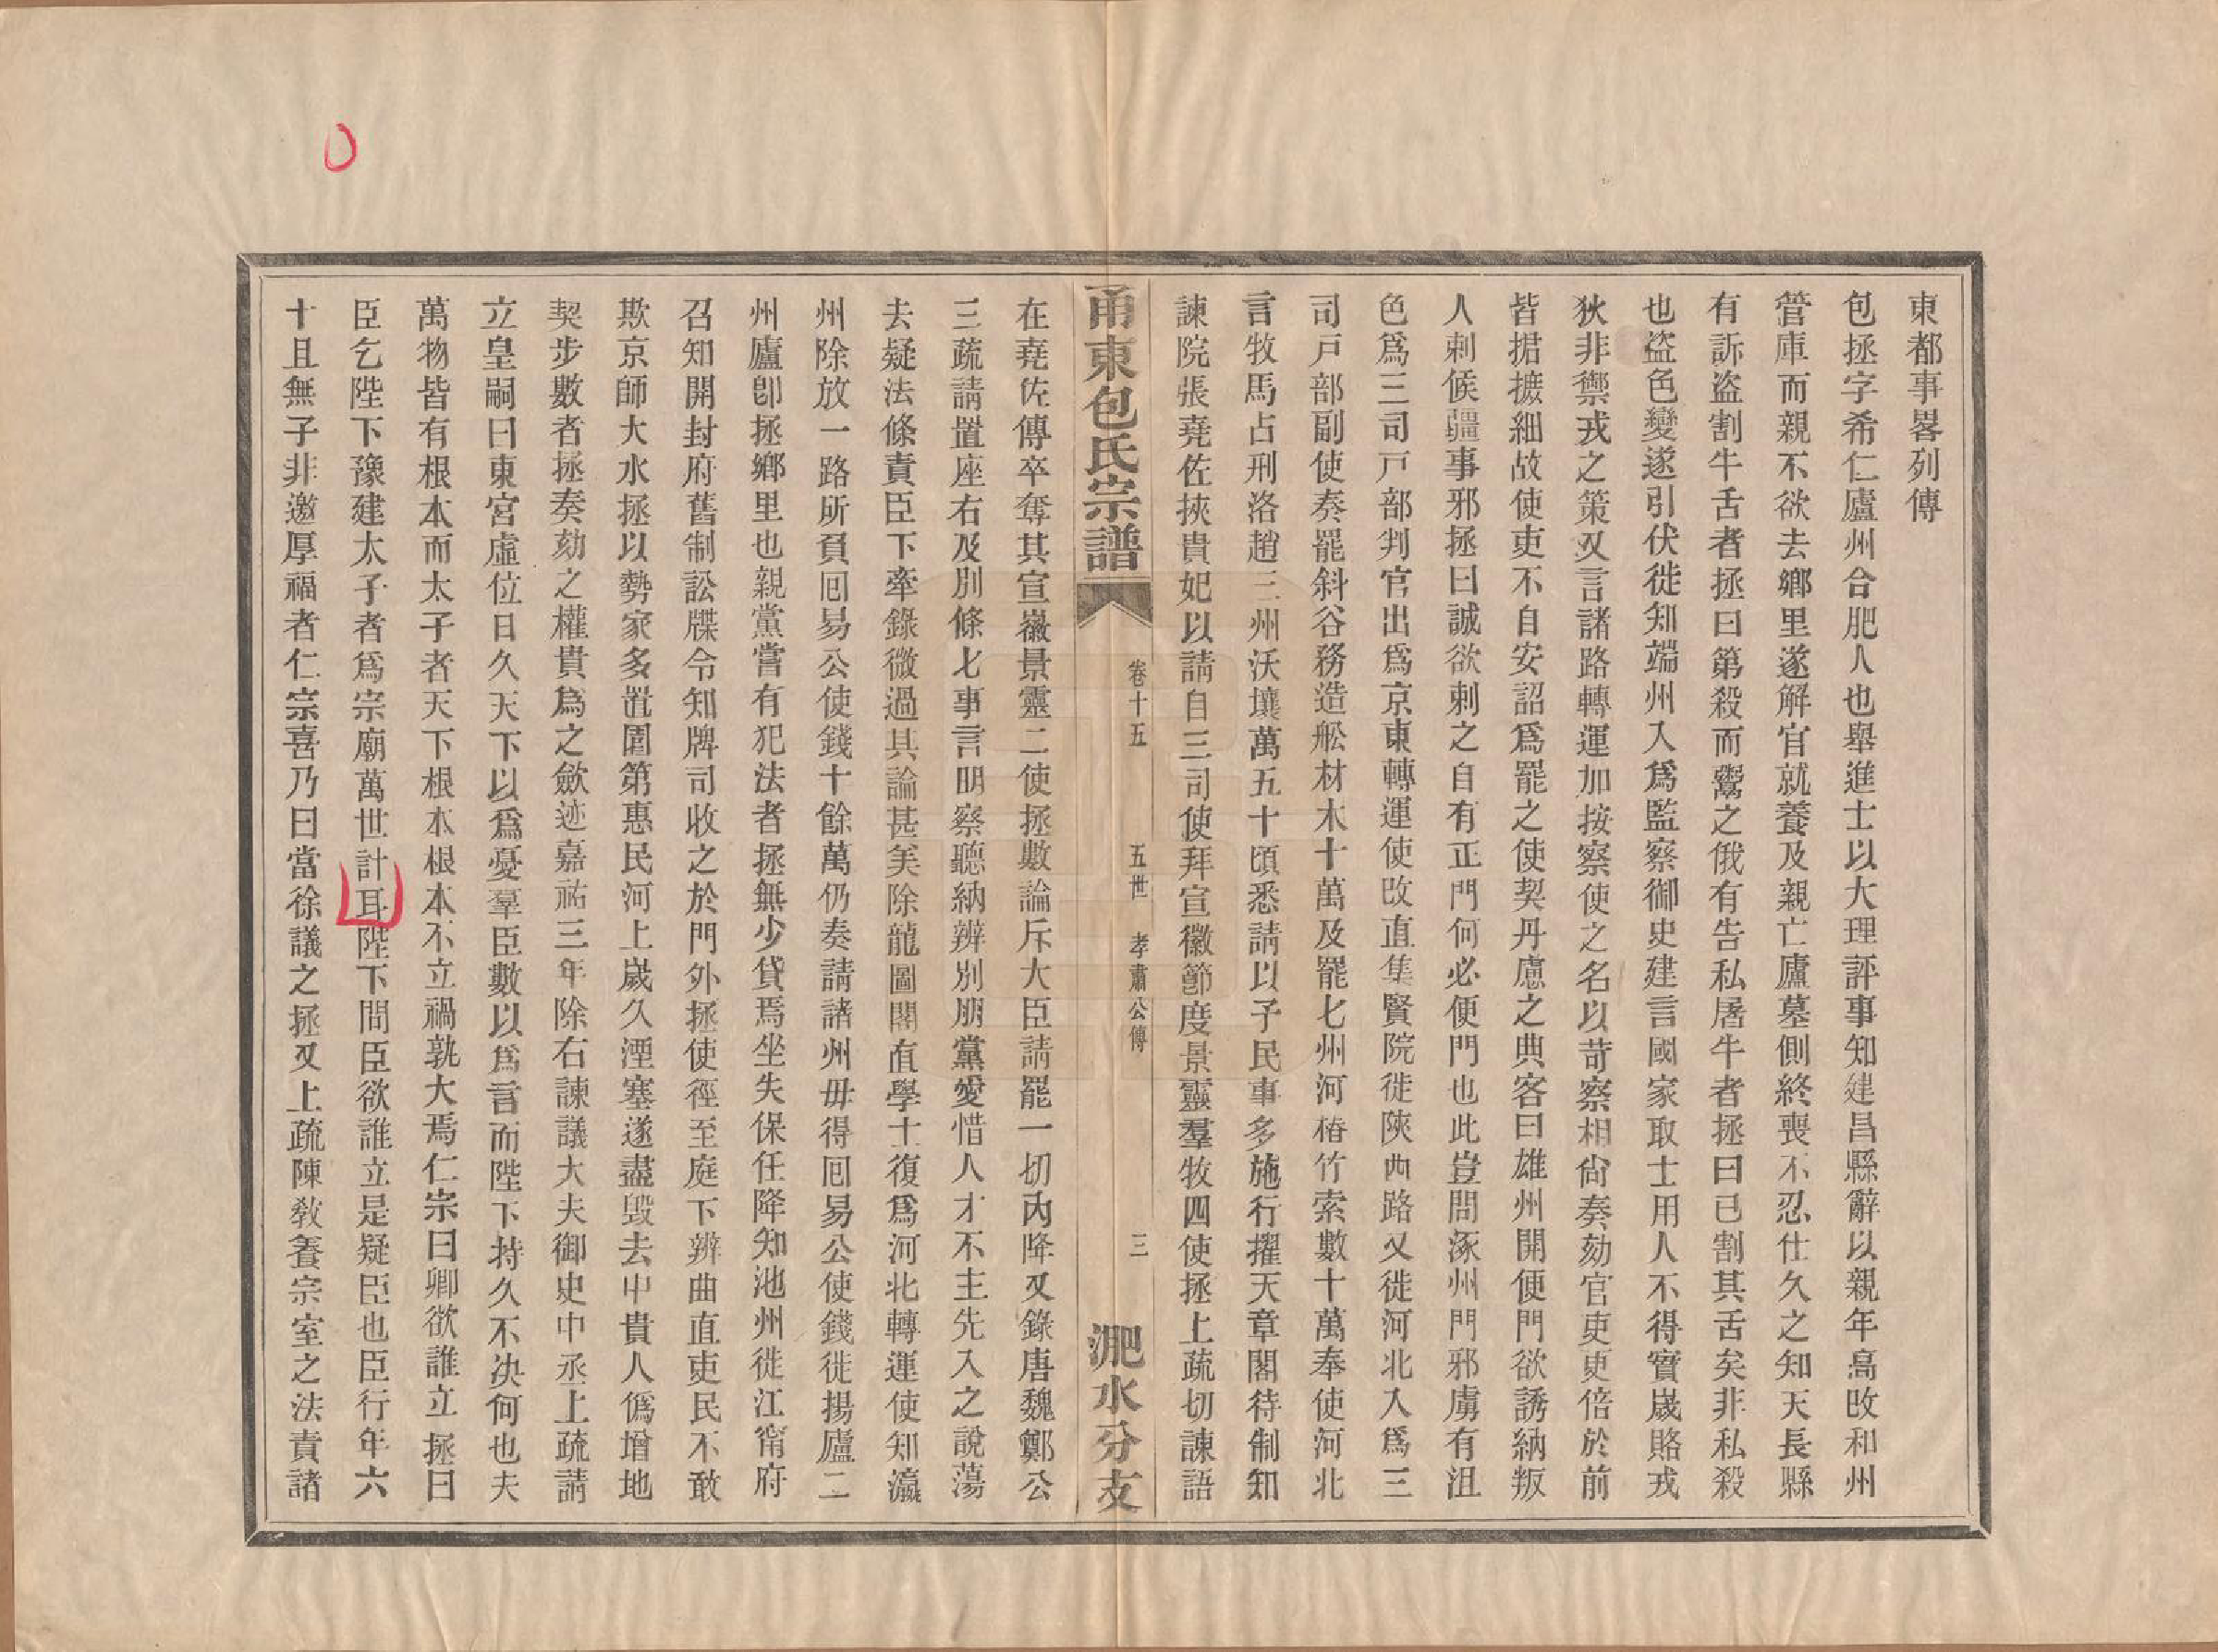 東都事畧列傳
包拯字希仁廬州合肥人也舉進士以大理評事知建昌縣辭以親年高改和州
管庫而親不欲去鄉里遂解官就養及親亡廬墓側終喪不忍仕久之知天長縣
有訴盜割牛舌者拯曰第殺而鬻之俄有告私屠牛者拯曰已割其舌矣非私殺
也盜色變遂引伏徙知端州入爲監察御史建言國家取士用人不得實歲賂戎
狄非禦戎之策又言諸路轉運加按察使之名以苛察相尙奏劾官吏更倍於前
皆掯摭細故使吏不自安詔爲罷之使契丹慮之典客曰雄州開便門欲誘納叛
人刺候疆事邪拯曰誠欲刺之自有正門何必便門也此豈問涿州門邪虜有沮
色爲三司戸部判官出爲京東轉運使改直集賢院徙陝西路又徙河北入爲三
司戸部副使奏罷斜谷務造舩材木十萬及罷七州河樁竹索數十萬奉使河北
言牧馬占刑洛趙三州沃壤萬五十頃悉請以予民事多施行擢天章閣待制知
諫院張堯佐挾貴妃以請自三司使拜宣徽節度景靈羣牧四使拯上疏切諫語
甬東包氏宗譜
卷十五
五世
孝肅公傳
三
淝水分支
在堯佐傳卒奪其宣嶶景靈二使拯數論斥大臣請罷一切內降又錄唐魏鄭公
三疏請置座右及別條七事言明察聽納辨別朋黨愛惜人才不主先入之說蕩
去疑法條責臣下牽錄微過其論甚美除龍圖閣直學士復爲河北轉運使知瀛
州除放一路所負囘易公使錢十餘萬仍奏請諸州毋得囘易公使錢徙揚廬二
州廬卽拯鄉里也親黨嘗有犯法者拯無少貸焉坐失保任降知池州徙江甯府
召知開封府舊制訟牒令知牌司收之於門外拯使徑至庭下辨曲直吏民不敢
欺京師大水拯以勢家多置園第惠民河上歲久湮塞遂盡毀去中貴人僞增地
契步數者拯奏劾之權貴爲之歛迹嘉祐三年除右諫議大夫御史中丞上疏請
立皇嗣曰東宮虛位日久天下以爲憂羣臣數以爲言而陛下持久不决何也夫
萬物皆有根本而太子者天下根本根本不立禍孰大焉仁宗曰卿欲誰立拯曰
臣乞陛下豫建太子者爲宗廟萬世計耳陛下問臣欲誰立是疑臣也臣行年六
十且無子非邀厚福者仁宗喜乃曰當徐議之拯又上疏陳敎養宗室之法責諸